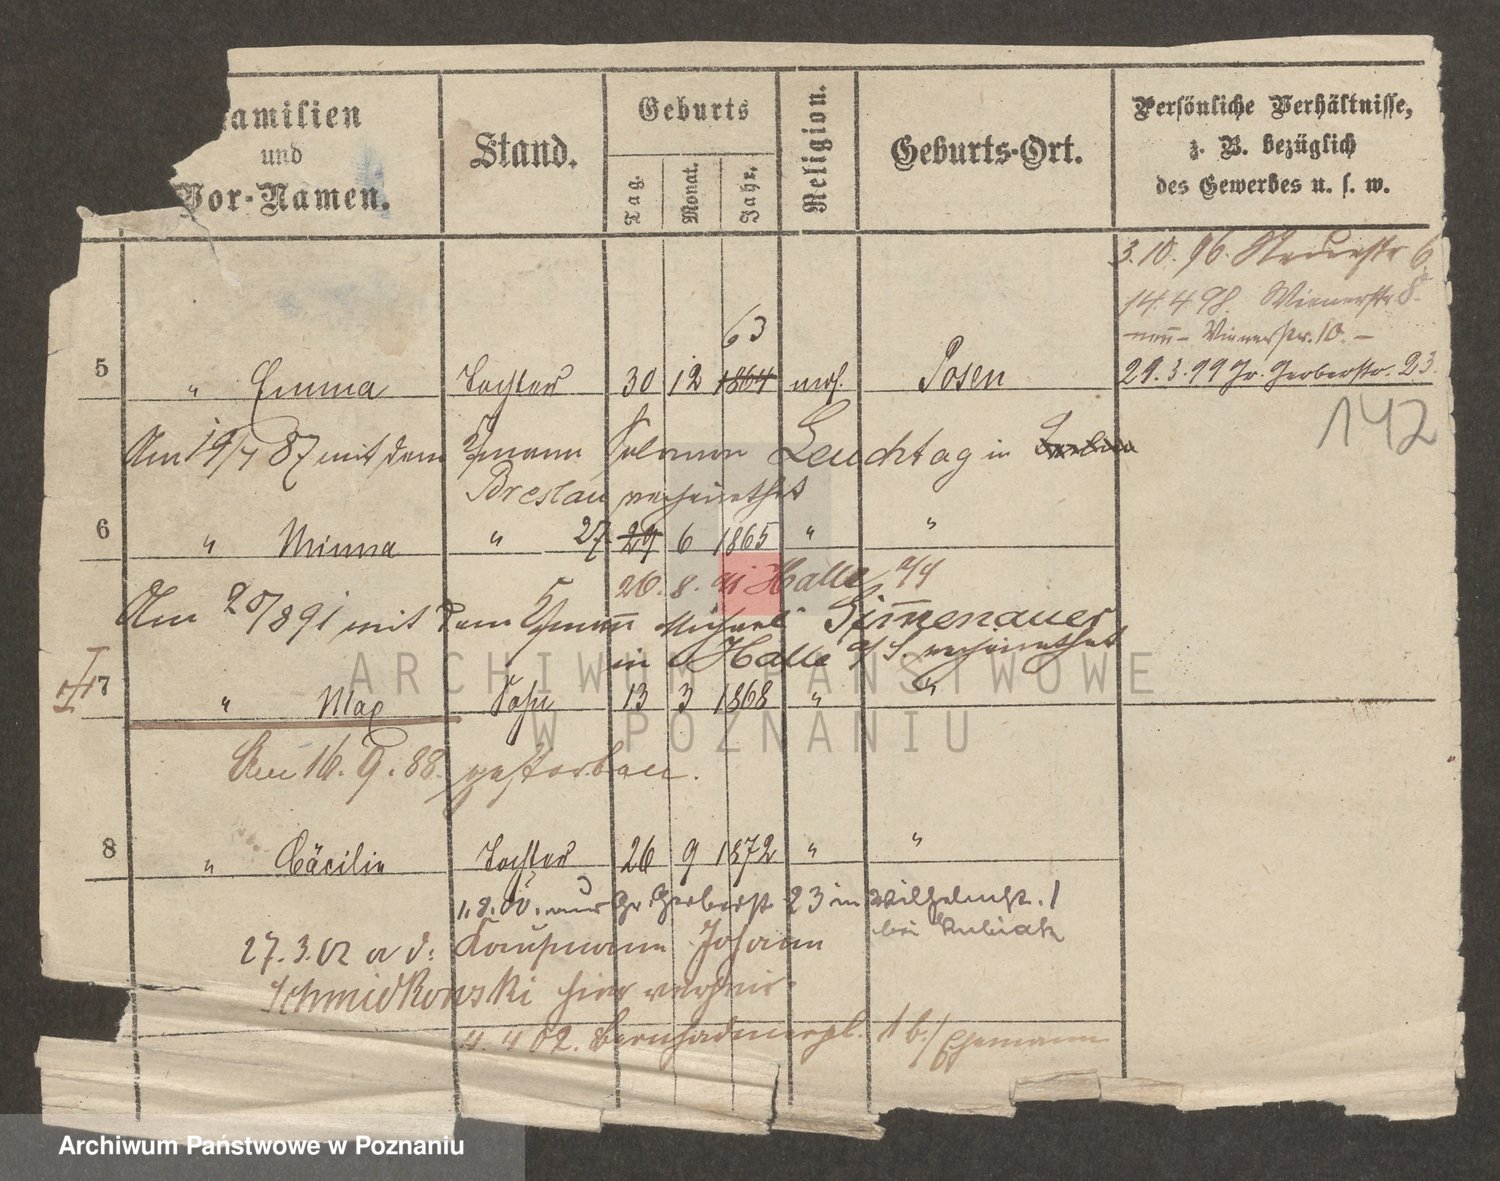 amilien
und
Vor-Namen.
Stand.
Geburts
Tag.
Monat.
Jahr.
Religion.
Geburts-Ort.
Persönliche Verhältnisse,
z. B. bezüglich
des Gewerbes u. s. w.
3.10.96. 6
14.4.98. Wienerstr 8.
Wienerstr. 10. -
29.3.99 Gr. Gerberstr. 23.
63
5 " Emma Tochter 30 12 1864 mos. Posen
142
Am 19/7 87 mit dem Kfmann Salomon Leuchtag in
Breslau verheirathet
6 " Minna " 27 29 6 1865 " "
26. 8. 91 Halle a/S
Am 20/8 91 mit dem Kfmann Michael Simmenauer
in Halle a/S. verheirathet
7 " Max Sohn 13 3 1868 " "
Am 16. 9. 88. gestorben.
8 " Cäcilie Tochter 26 9 1872 " "
1.8.00. nur Gr. Gerberst 23 in Wilhelmst. 1
bei Kubiak
27.3.02 a d: Kaufmann Johann
Schmidkonski hier verheir.
4. 4 02. 1 b./Ehemann
ARCHIWUM PAŃSTWOWE
W POZNANIU
Archiwum Państwowe w Poznaniu